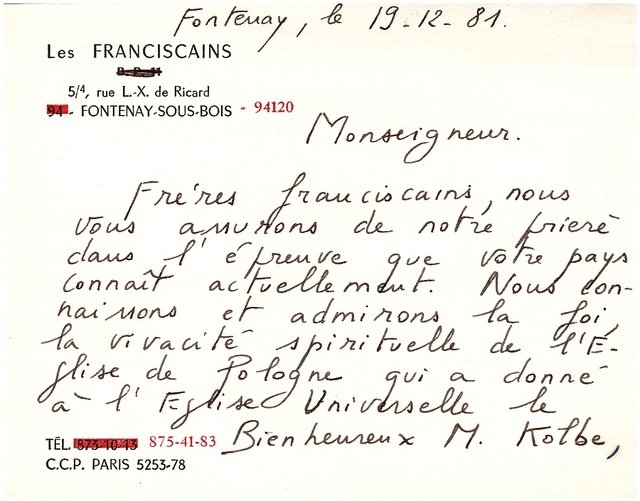 Fontenay, le 19-12-81.
Les FRANCISCAINS
5/4, rue L.-X. de Ricard
94 - FONTENAY-SOUS-BOIS - 94120
Monseigneur.
Frères franciscains, nous
vous assurons de notre prière
dans l'épreuve que votre pays
connaît actuellement. Nous con-
naissons et admirons la foi,
la vivacité spirituelle de l'É-
glise de Pologne qui a donné
à l'Eglise Universelle le
Bienheureux M. Kolbe,
TÉL. 873-10-13 875-41-83
C.C.P. PARIS 5253-78